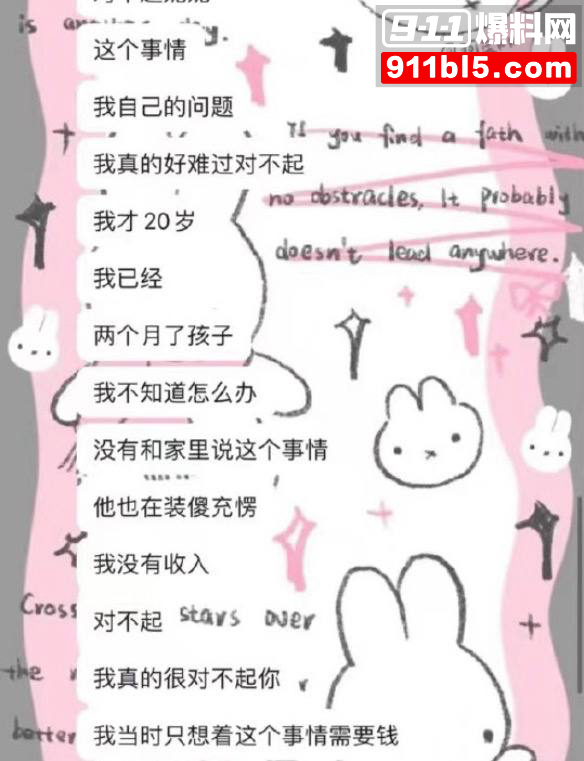 911爆料网
911bl5.com
is another day.
这个事情
我自己的问题
If you find a path with
我真的好难过对不起
no obstacles, it probably
我才20岁
doesn't lead anywhere.
我已经
两个月了孩子
我不知道怎么办
没有和家里说这个事情
他也在装傻充愣
我没有收入
Cross
对不起
stars over
the
我真的很对不起你
better
我当时只想着这个事情需要钱